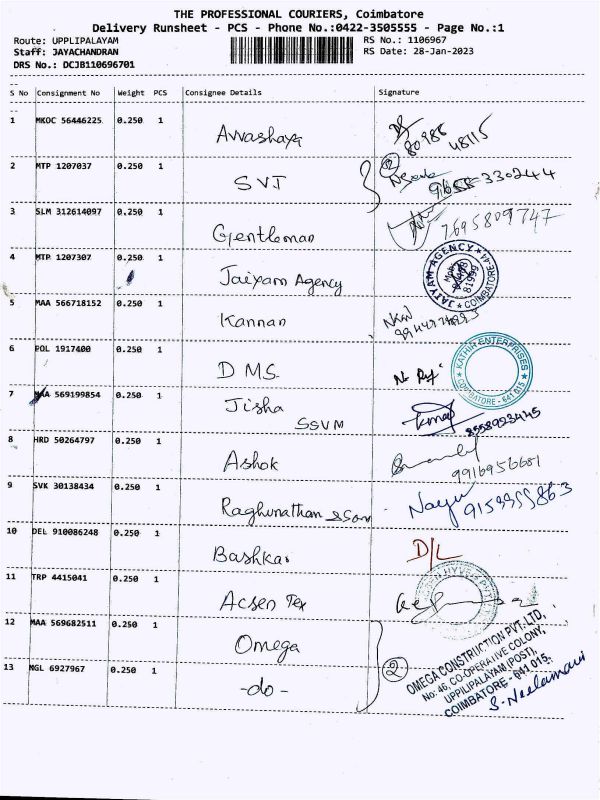 THE PROFESSIONAL COURIERS, Coimbatore
Delivery Runsheet - PCS - Phone No.:0422-3505555 - Page No.:1
Route: UPPLIPALAYAM RS No.: 1106967
Staff: JAYACHANDRAN RS Date: 28-Jan-2023
DRS No.: DCJB110696701
S No Consignment No Weight PCS Consignee Details Signature
1 MKOC 56446225 0.250 1 80986 48115
2 MTP 1207037 0.250 1 SVJ 2
3 SLM 312614097 0.250 1 Gentleman 7695809747
4 MTP 1207307 0.250 1 Jaiyam Agency JAIYAM AGENCY COIMBATORE-44
5 MAA 566718152 0.250 1 Kannan
6 POL 1917400 0.250 1 DMS KATHIR ENTERPRISES COIMBATORE - 641 015
7 MAA 569199854 0.250 1 Jisha SSVM
8 HRD 50264797 0.250 1 Ashok 9916956681
9 SVK 30138434 0.250 1 Raghunathan
10 DEL 910086248 0.250 1 Bashkar D/L
11 TRP 4415041 0.250 1 Acsen Tex
12 MAA 569682511 0.250 1 Omega 2 OMEGA CONSTRUCTION PVT. LTD,
No: 46, CO-OPERATIVE COLONY,
UPPILIPALAYAM (POST),
COIMBATORE - 641 015.
13 MGL 6927967 0.250 1 -do- S. Neelamani